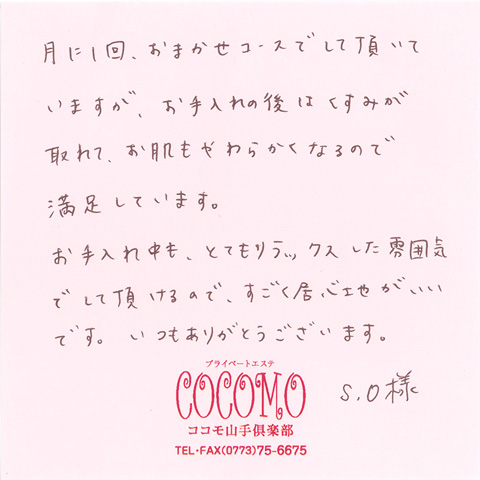 月に1回、おまかせコースでして頂いて
いますが、お手入れの後はくすみが
取れて、お肌もやわらかくなるので
満足しています。
お手入れ中も、とてもリラックスした雰囲気
でして頂けるので、すごく居心地がいい
です。いつもありがとうございます。
プライベートエステ
COCOMO
ココモ山手倶楽部
TEL・FAX(0773)75-6675
S.O様